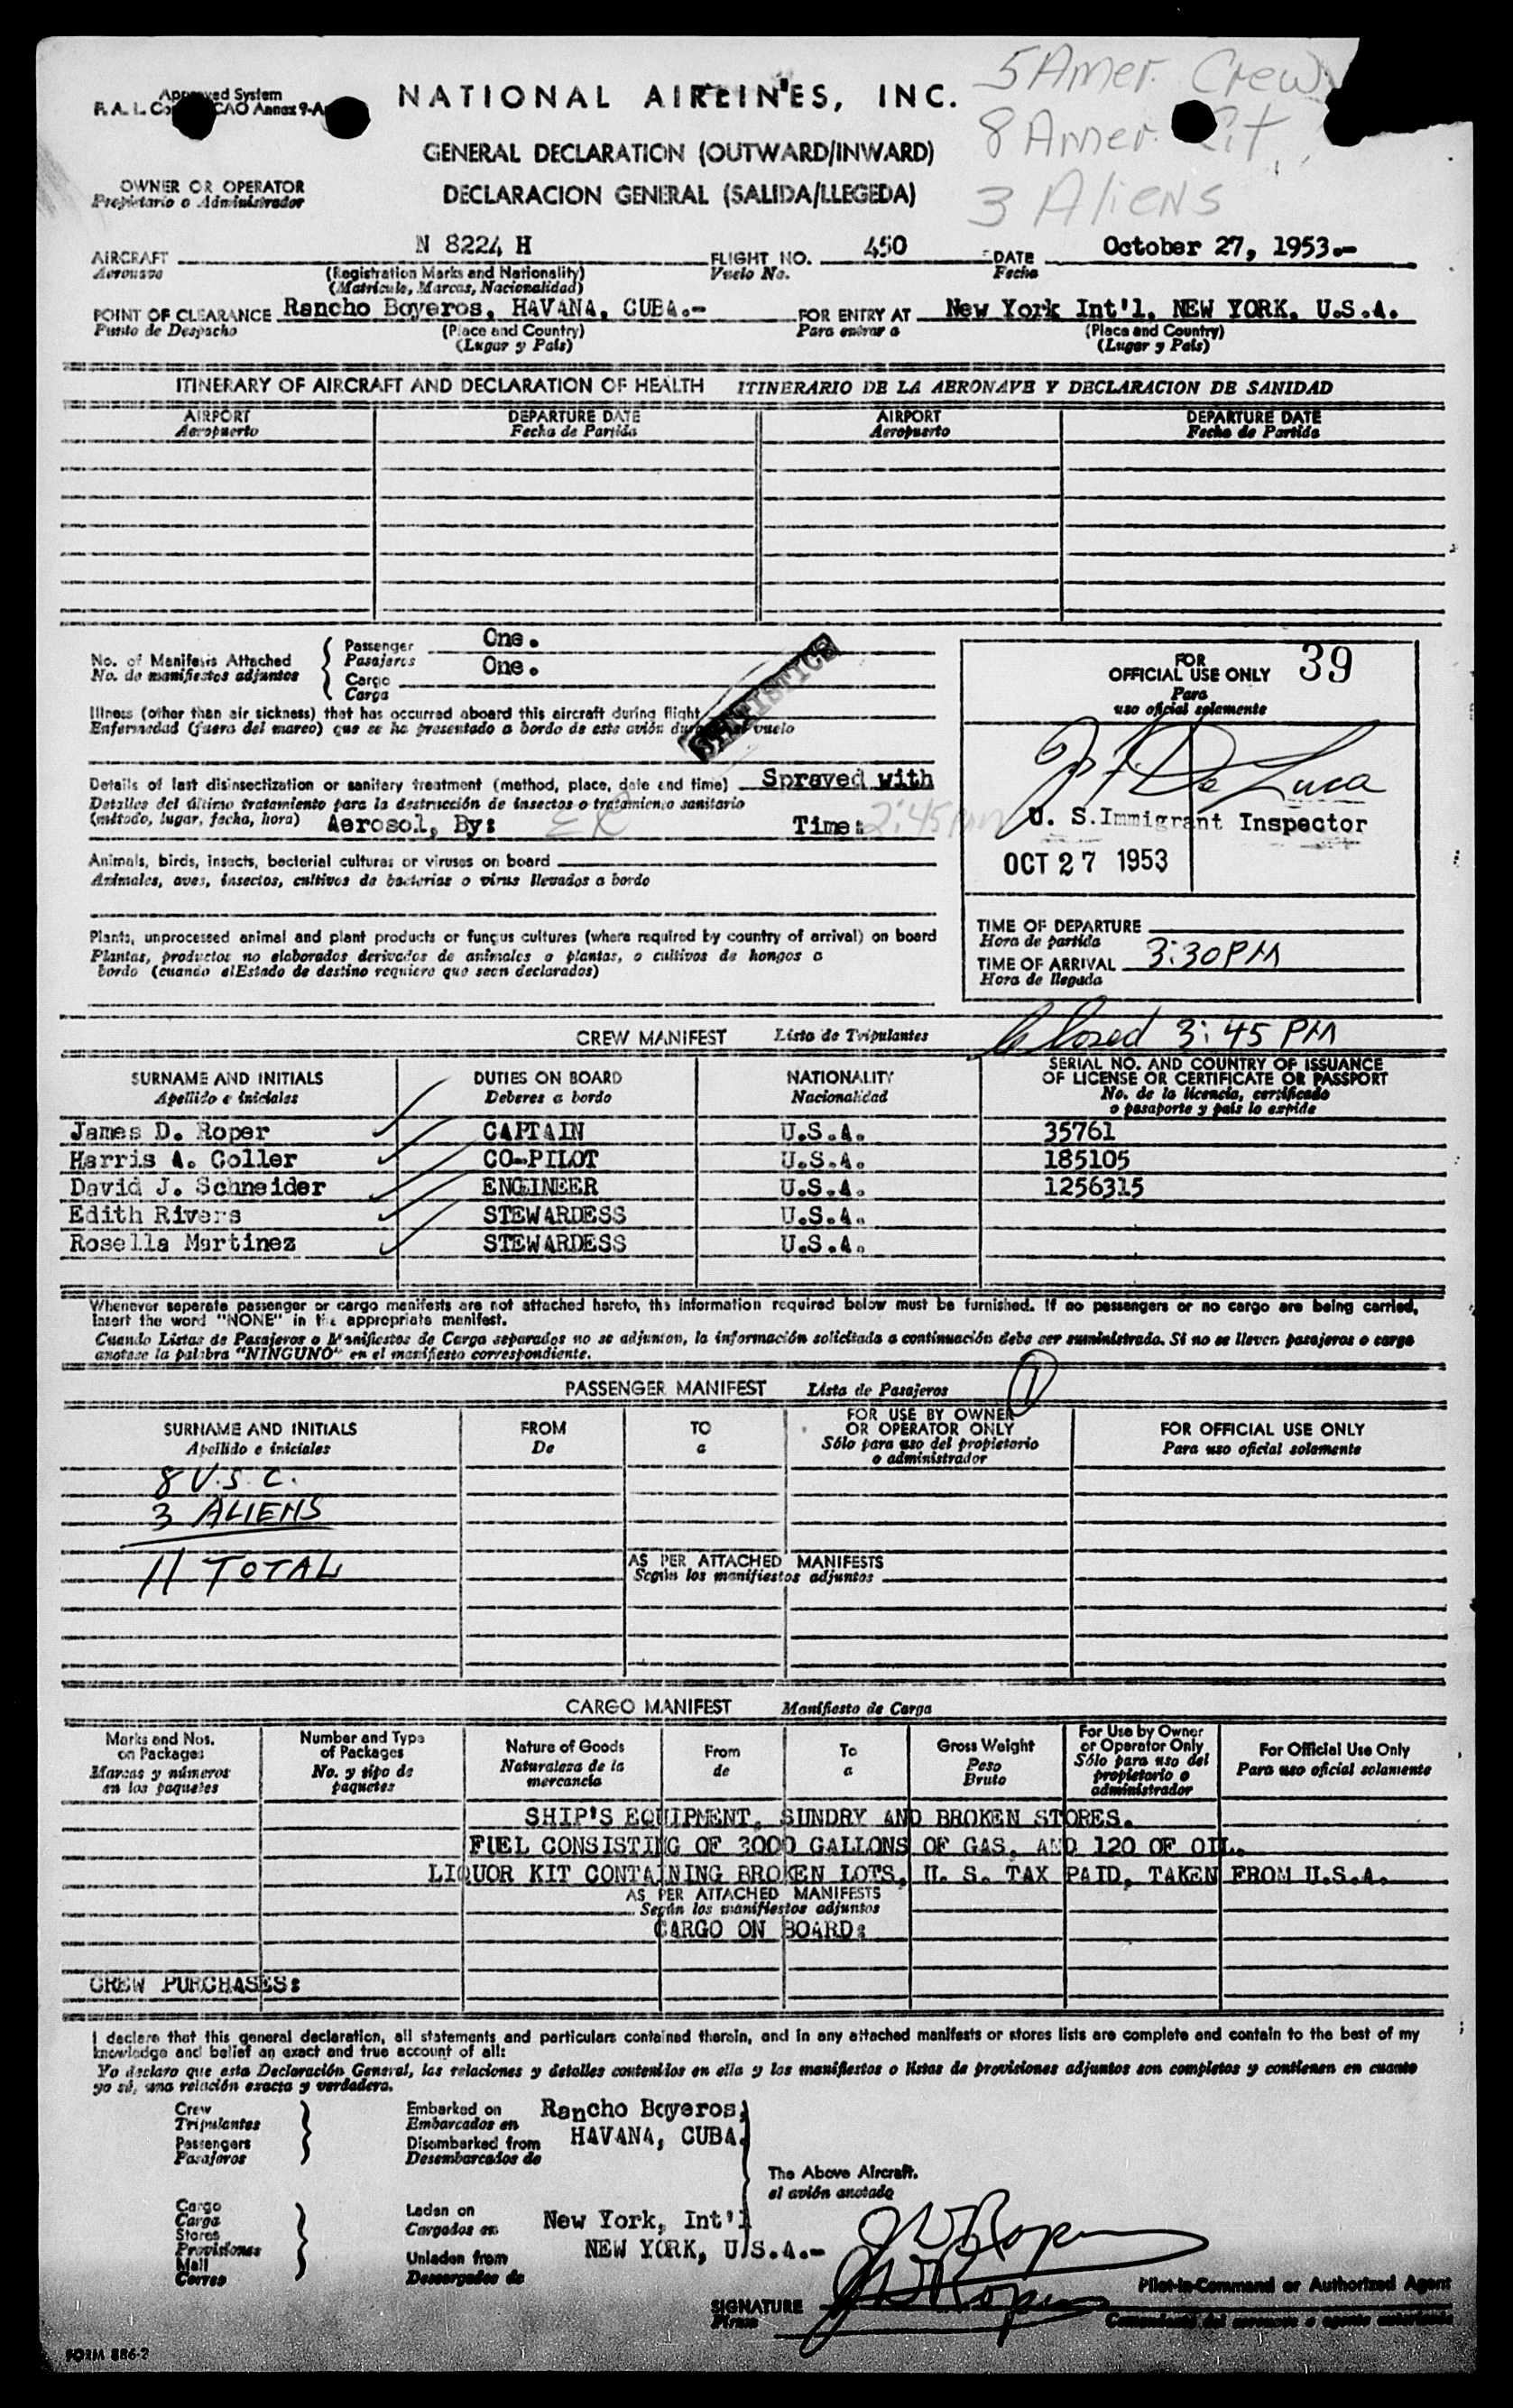 Approved System
NATIONAL AIRLINES, INC.
5 Amer. Crew
8 Amer. Cit.
3 Aliens
GENERAL DECLARATION (OUTWARD/INWARD)
DECLARACION GENERAL (SALIDA/LLEGEDA)
OWNER OR OPERATOR
Propietario o Administrador
AIRCRAFT N 8224 H FLIGHT NO. 450 DATE October 27, 1953.-
Aeronave (Registration Marks and Nationality) Vuelo No. Fecha
(Matricula, Marcas, Nacionalidad)
POINT OF CLEARANCE Rancho Boyeros, HAVANA, CUBA.- FOR ENTRY AT New York Int'l, NEW YORK, U.S.A.
Punto de Despacho (Place and Country) Para entrar a (Place and Country)
(Lugar y País) (Lugar y País)
ITINERARY OF AIRCRAFT AND DECLARATION OF HEALTH ITINERARIO DE LA AERONAVE Y DECLARACION DE SANIDAD
AIRPORT DEPARTURE DATE AIRPORT DEPARTURE DATE
Aeropuerto Fecha de Partida Aeropuerto Fecha de Partida
No. of Manifests Attached Passenger One.
No. de manifiestos adjuntos Pasajeros
Cargo One.
Carga
STATISTICS
Illness (other than air sickness) that has occurred aboard this aircraft during flight
Enfermedad (fuera del mareo) que se ha presentado a bordo de este avión durante el vuelo
Details of last disinsectization or sanitary treatment (method, place, date and time) Sprayed with
Detalles del último tratamiento para la destrucción de insectos o tratamiento sanitario
(método, lugar, fecha, hora) Aerosol, By: ER Time: 2:45 PM
Animals, birds, insects, bacterial cultures or viruses on board
Animales, aves, insectos, cultivos de bacterias o virus llevados a bordo
Plants, unprocessed animal and plant products or fungus cultures (where required by country of arrival) on board
Plantas, productos no elaborados derivados de animales o plantas, o cultivos de hongos a
bordo (cuando elEstado de destino requiere que sean declarados)
FOR
OFFICIAL USE ONLY 39
Para
uso oficial solamente
De Luca
U. S. Immigrant Inspector
OCT 27 1953
TIME OF DEPARTURE
Hora de partida
TIME OF ARRIVAL 3:30 PM
Hora de llegada
Closed 3:45 PM
CREW MANIFEST Lista de Tripulantes
SURNAME AND INITIALS DUTIES ON BOARD NATIONALITY SERIAL NO. AND COUNTRY OF ISSUANCE
OF LICENSE OR CERTIFICATE OR PASSPORT
Apellido e iniciales Deberes a bordo Nacionalidad No. de la licencia, certificado
o pasaporte y país lo expide
James D. Roper CAPTAIN U.S.A. 35761
Harris A. Coller CO-PILOT U.S.A. 185105
David J. Schneider ENGINEER U.S.A. 1256315
Edith Rivers STEWARDESS U.S.A.
Rosella Martinez STEWARDESS U.S.A.
Whenever seperate passenger or cargo manifests are not attached hereto, the information required below must be furnished. If no passengers or no cargo are being carried,
insert the word "NONE" in the appropriate manifest.
Cuando Listas de Pasajeros o Manifiestos de Carga separados no se adjunton, la información solicitada a continuación debe ser suministrada. Si no se lleven pasajeros o carga
anotase la palabra "NINGUNO" en el manifiesto correspondiente.
PASSENGER MANIFEST Lista de Pasajeros 1
SURNAME AND INITIALS FROM TO FOR USE BY OWNER
OR OPERATOR ONLY FOR OFFICIAL USE ONLY
Apellido e iniciales De a Sólo para uso del propietario
o administrador Para uso oficial solamente
8 U.S.C.
3 ALIENS
11 TOTAL
AS PER ATTACHED MANIFESTS
Según los manifiestos adjuntos
CARGO MANIFEST Manifiesto de Carga
Marks and Nos.
on Packages
Marcas y números
en los paquetes
Number and Type
of Packages
No. y tipo de
paquetes
Nature of Goods
Naturaleza de la
mercancia
From
de
To
a
Gross Weight
Peso
Bruto
For Use by Owner
or Operator Only
Sólo para uso del
propietario o
administrador
For Official Use Only
Para uso oficial solamente
SHIP'S EQUIPMENT, SUNDRY AND BROKEN STORES.
FUEL CONSISTING OF 3000 GALLONS OF GAS, AND 120 OF OIL.
LIQUOR KIT CONTAINING BROKEN LOTS, U. S. TAX PAID, TAKEN FROM U.S.A.
AS PER ATTACHED MANIFESTS
Según los manifiestos adjuntos
CARGO ON BOARD:
CREW PURCHASES:
I declare that this general declaration, all statements and particulars contained therein, and in any attached manifests or stores lists are complete and contain to the best of my
knowledge and belief an exact and true account of all:
Yo declaro que esta Declaración General, las relaciones y detalles contenidos en ella y los manifiestos o listas de provisiones adjuntos son completos y contienen en cuanto
yo sé, una relación exacta y verdadera.
Crew
Tripulantes
Passengers
Pasajeros
Embarked on Rancho Boyeros,
Embarcados en
Disembarked from HAVANA, CUBA.
Desembarcados de
The Above Aircraft.
el avión anotado
Cargo
Carga
Stores
Provisiones
Mail
Correo
Laden on New York, Int'l
Cargados en
Unladen from NEW YORK, U.S.A.-
Descargados de
JD Roper
JD Roper
Pilot-in-Command or Authorized Agent
SIGNATURE
Firma
FORM 886-2